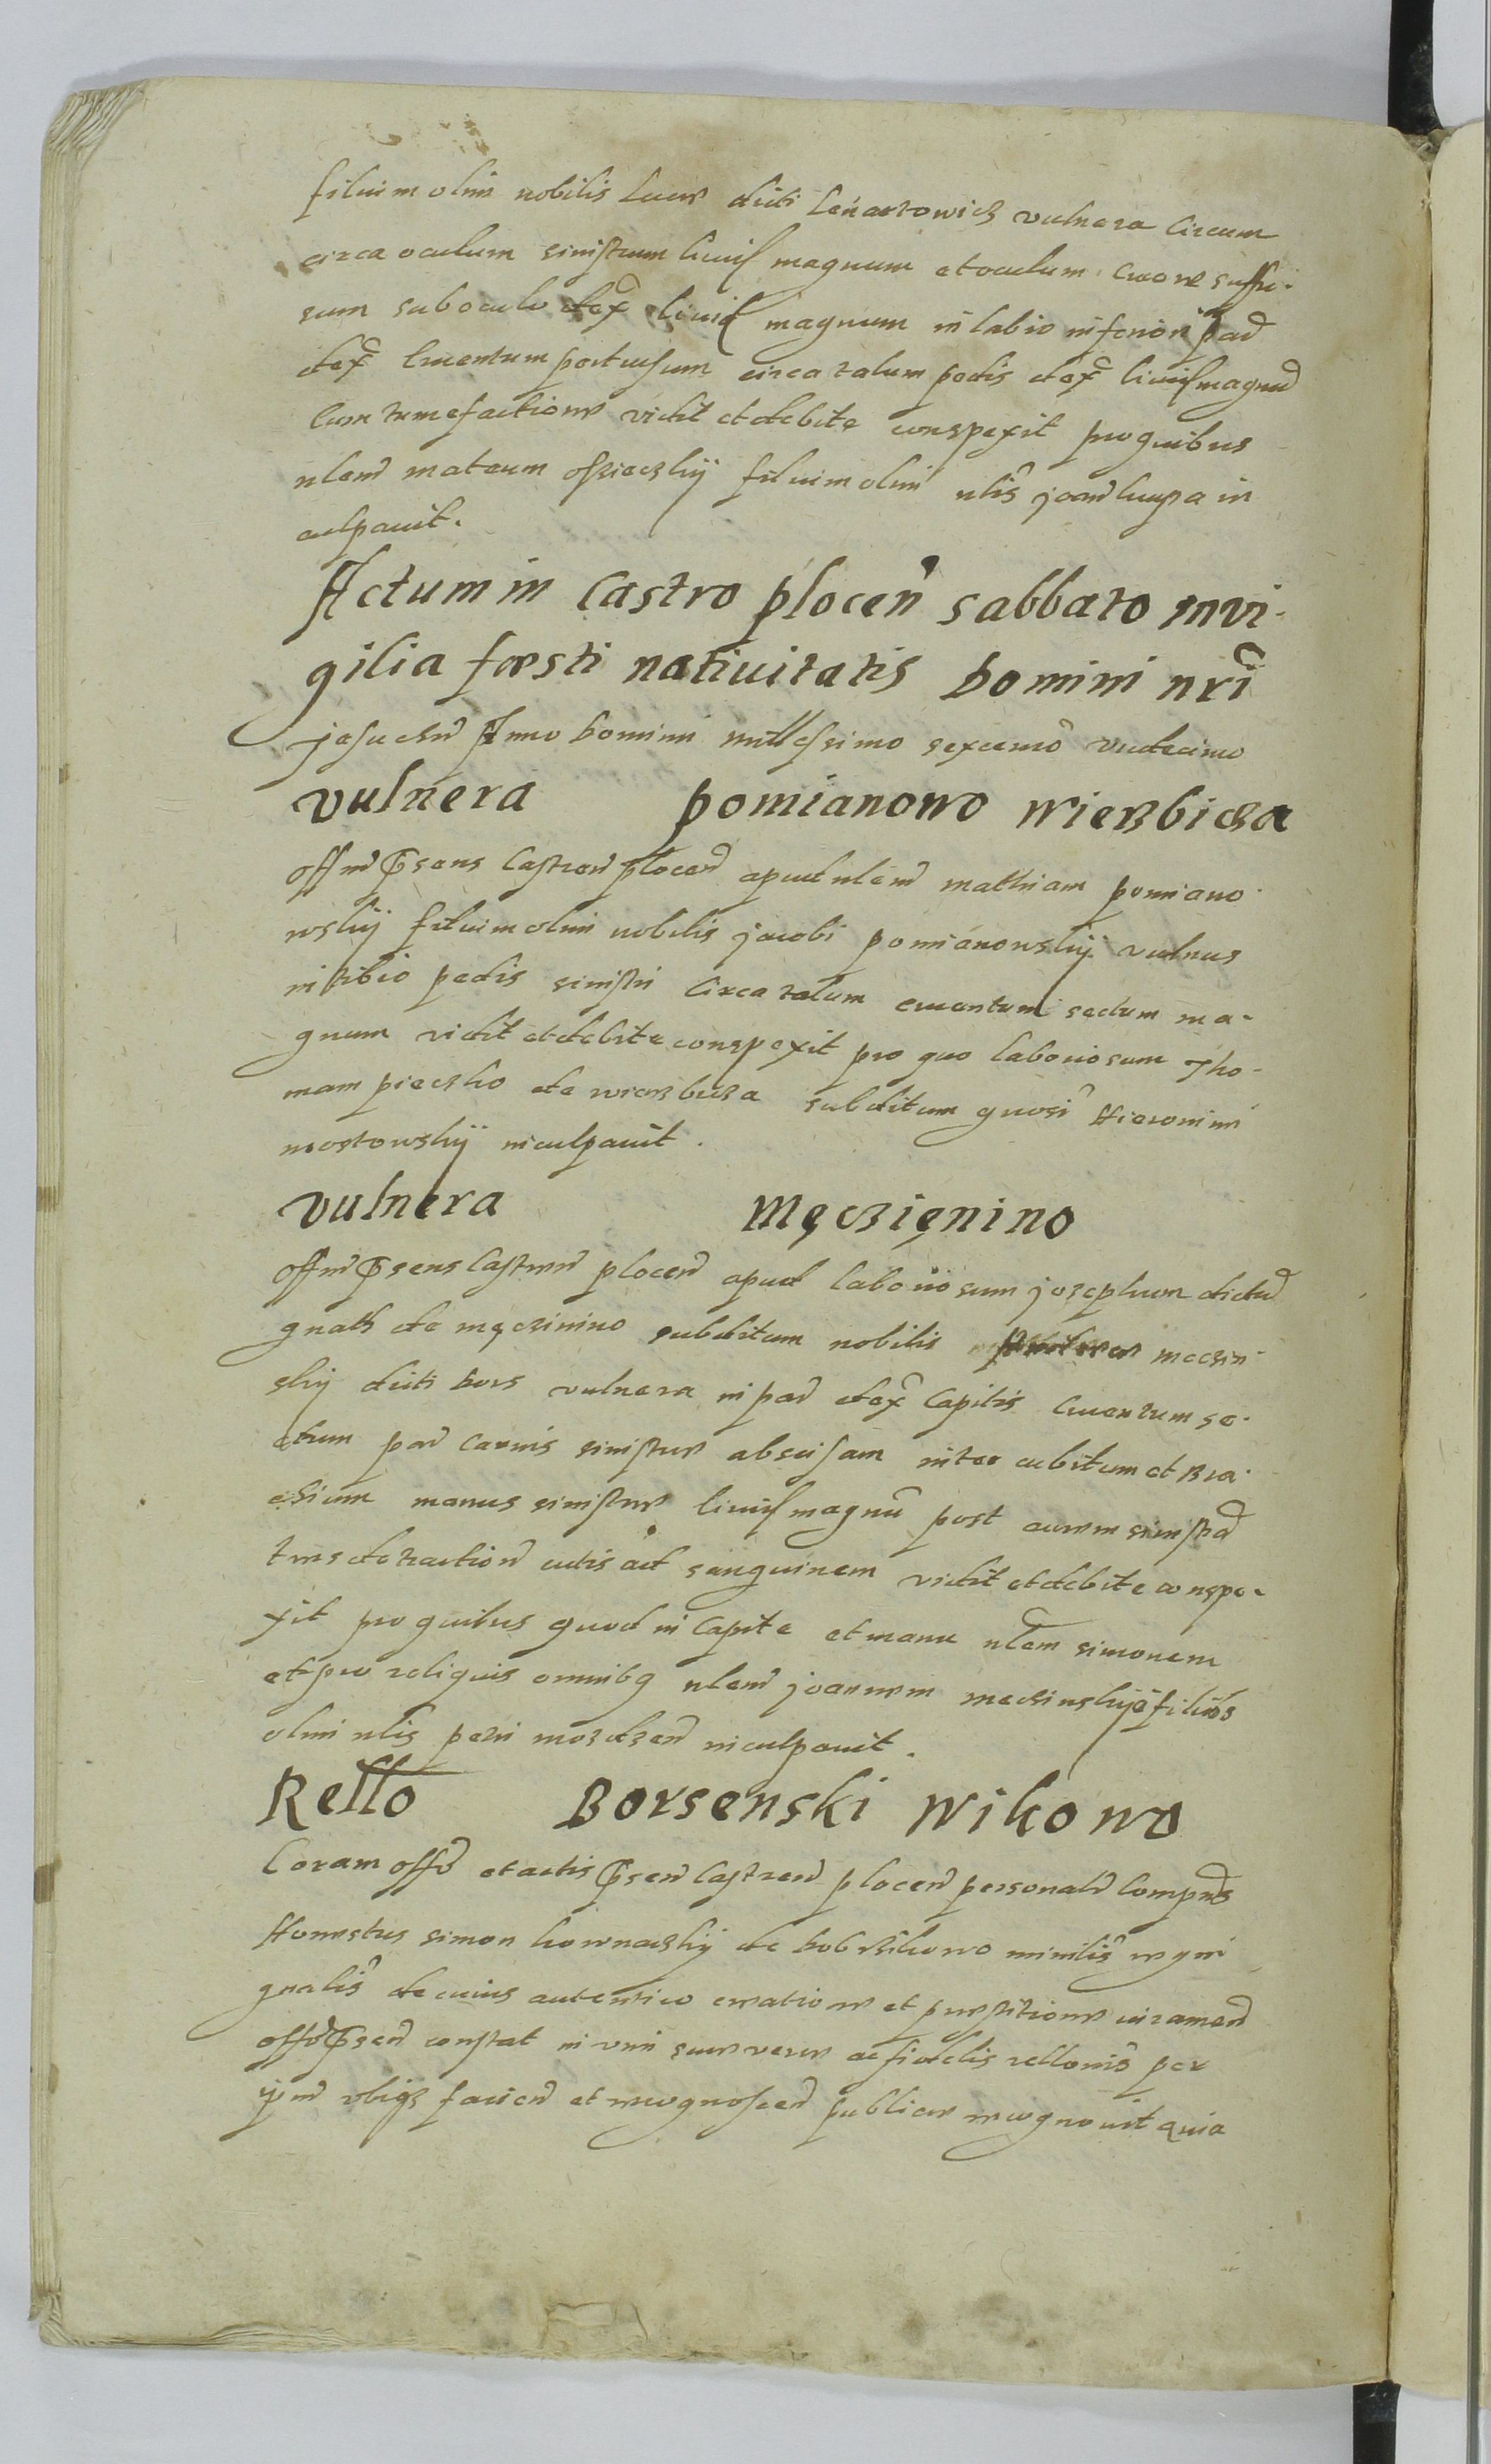 filium olim nobilis Lucæ dicti Lenartowicz vulnera circum
circa oculum sinistrum livif magnum et oculum cruore suffu-
sum sub oculo dex livif magnum in labio inferiori par
dex cruentum pertusum circa talum pedis dex livif magnu
cum tumefactione vidit et debite conspexit pro quibus
nlem Matheum
filium olim nlis Joan in
culpavit.
Actum in Castro plocen sabbato in vi-
gilia fæsti nativitatis Domini nri
Jesu chri Anno Domini millesimo sexcmo undecimo
Vulnera Pomianowo Wierzbicza
Offm psens Castren plocen apud nlem Mathiam pomiano-
wskij filium olim nobilis Jacobi pomianowskij vulnus
in tibio pedis sinistri circa talum cruentum sectum ma-
gnum vidit et debite conspexit pro quo laboriosum Tho-
mam pieczko de wierzbicza subditum gnosi Hieronimi
mostowskij inculpavit.
Vulnera Męczięnino
Offm psens Castren plocen apud laboriosum Josephum dictu
gnath de męczinino subditum nobilis meczin-
skij dicti bors vulnera in par dex capitis cruentum se-
ctum par carnis sinistræ abscisam inter cubitum et Bra-
chium manus sinistræ livif magnu post aurem sinistra
tres detraction cutis ad sanguinem vidit et debite conspe-
xit pro quibus quod in capite et manu nlem simonem
et pro reliquis omnibq nlem Joannem meczinskije filios
olim nlis petri inculpavit.
Rello Borsenski Wikowo
Coram offo et actis psen Castren plocen personalr compns
Honestus simon kownaczkij de minilis regni
gnalis de cuius autentico creatione et præstitione iuramen
offo psen constat in vim suæ veræ ac fidelis rellonis per
ipm obiqz facien et recognoscen publicæ recognovit quia